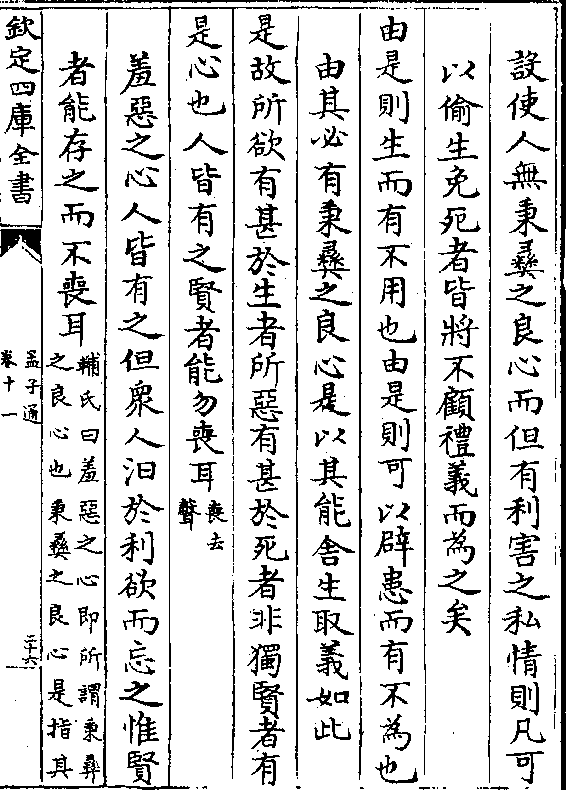 設使人無秉彞之良心而但有利害之私情則凡可
以偷生免死者皆將不顧禮義而為之矣
由是則生而有不用也由是則可以辟患而有不為也
由其必有秉彞之良心是以其能舎生取義如此
是故所欲有甚於生者所惡有甚於死者非獨賢者有
是心也人皆有之賢者能勿喪耳
喪去
聲
羞惡之心人皆有之但衆人汨於利欲而忘之惟賢
者能存之而不喪耳
輔氏曰羞惡之心即所謂秉彞
之良心也秉彞之良心是指其
欽定四庫全書
孟子通
卷十一
二十六